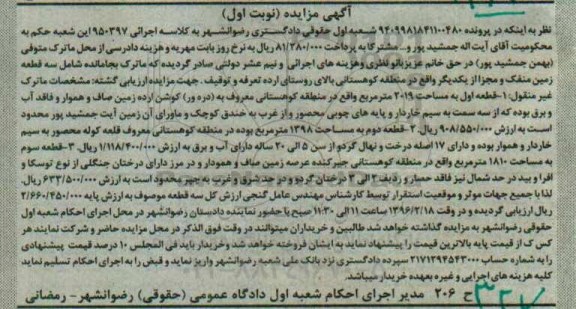 آگهی مزایده (نوبت اول)
نظر به اینکه در پرونده ۹۴۰۹۹۸۱۸۴۱۱۰۰۴۸۰ شعبه اول حقوقی دادگستری رضوانشهر به کلاسه اجرائی ۹۵۰۳۹۷ این شعبه حکم به
محکومیت آقای آیت اله جمشید پور و... مشترکا به پرداخت ۸۱/۳۸۰/۰۰۰ ریال به نرخ روز بابت مهریه و هزینه دادرسی از محل ماترک متوفی
(بهمن جمشید پور) در حق خانم عزیزبانو نظری وهزینه های اجرائی و نیم عشر دولتی صادر گردیده که ماترک بجامانده شامل سه قطعه
زمین منفک و مجزا از یکدیگر واقع در منطقه کوهستانی بالای روستای ارده تعرفه و توقیف . جهت مزایده ارزیابی گشته: مشخصات ماترک
غیر منقول: ۱-قطعه اول به مساحت ۲۰۱۹ مترمربع واقع در منطقه کوهستانی معروف به (دره ور) کوشن ارده زمین صاف و هموار و فاقد آب
و برق بوده که از سه سمت به سیم خاردار و پایه های چوبی محصور و از غرب به خندق کوچک و ماورای آن زمین آیت جمشید پور محدود
است به ارزش ۹۰۸/۵۵۰/۰۰۰ ریال. ۲-قطعه دوم به مساحت ۱۳۹۸ مترمربع بوده در منطقه کوهستانی معروف قلعه کوله محصور به سیم
خاردار و هموار بوده و دارای ۱۷ اصله درخت و نهال گردو از سن ۵ الی ۲۰ ساله دارای آب و برق به ارزش ۱/۱۱۸/۴۰۰/۰۰۰ ریال. ۳-قطعه سوم
به مساحت ۱۸۱۰ مترمربع واقع در منطقه کوهستانی جیرکنده عرصه زمین صاف و همودار و در مرز دارای درختان جنگلی از نوع توسکا و
افرا و بید در حد شمال نیز فاقد حصار و ردیف ۲ الی ۳ درختان گردو و در حد شرق و غرب به چپر محدود است به ارزش ۶۳۳/۵۰۰/۰۰۰ ریال.
لذا با جمیع جهات موثر و موقعیت استقرار توسط کارشناس مهندس عامل گنجی ارزش کل سه قطعه موصوف به ارزش پایه ۲/۶۶۰/۴۵۰/۰۰۰
ریال ارزیابی گردیده و در وقت ۱۳۹۶/۲/۱۸ ساعت ۱۱ الی ۱۱:۳۰ صبح با حضور نماینده دادستان رضوانشهر در محل اجرای احکام شعبه اول
حقوقی رضوانشهر به مزایده گذاشته خواهد شد طالبین و خریداران میتوانند در وقت فوق الذکر در محل مزایده حاضر و شرکت نمایند هر
کس که از قیمت پایه بالاترین قیمت را پیشنهاد نماید به ایشان فروخته خواهد شد وخریدار باید فی المجلس ۱۰ درصد قیمت پیشنهادی
را به شماره حساب ۲۱۷۱۲۹۴۵۴۳۰۰۰ سپرده دادگستری نزد بانک ملی شعبه رضوانشهر واریز نماید و قبض را به اجرای احکام تسلیم نماید
کلیه هزینه های اجرایی و غیره بعهده خریدار میباشد.
ح ۲۰۶ مدیر اجرای احکام شعبه اول دادگاه عمومی (حقوقی) رضوانشهر- رمضانی